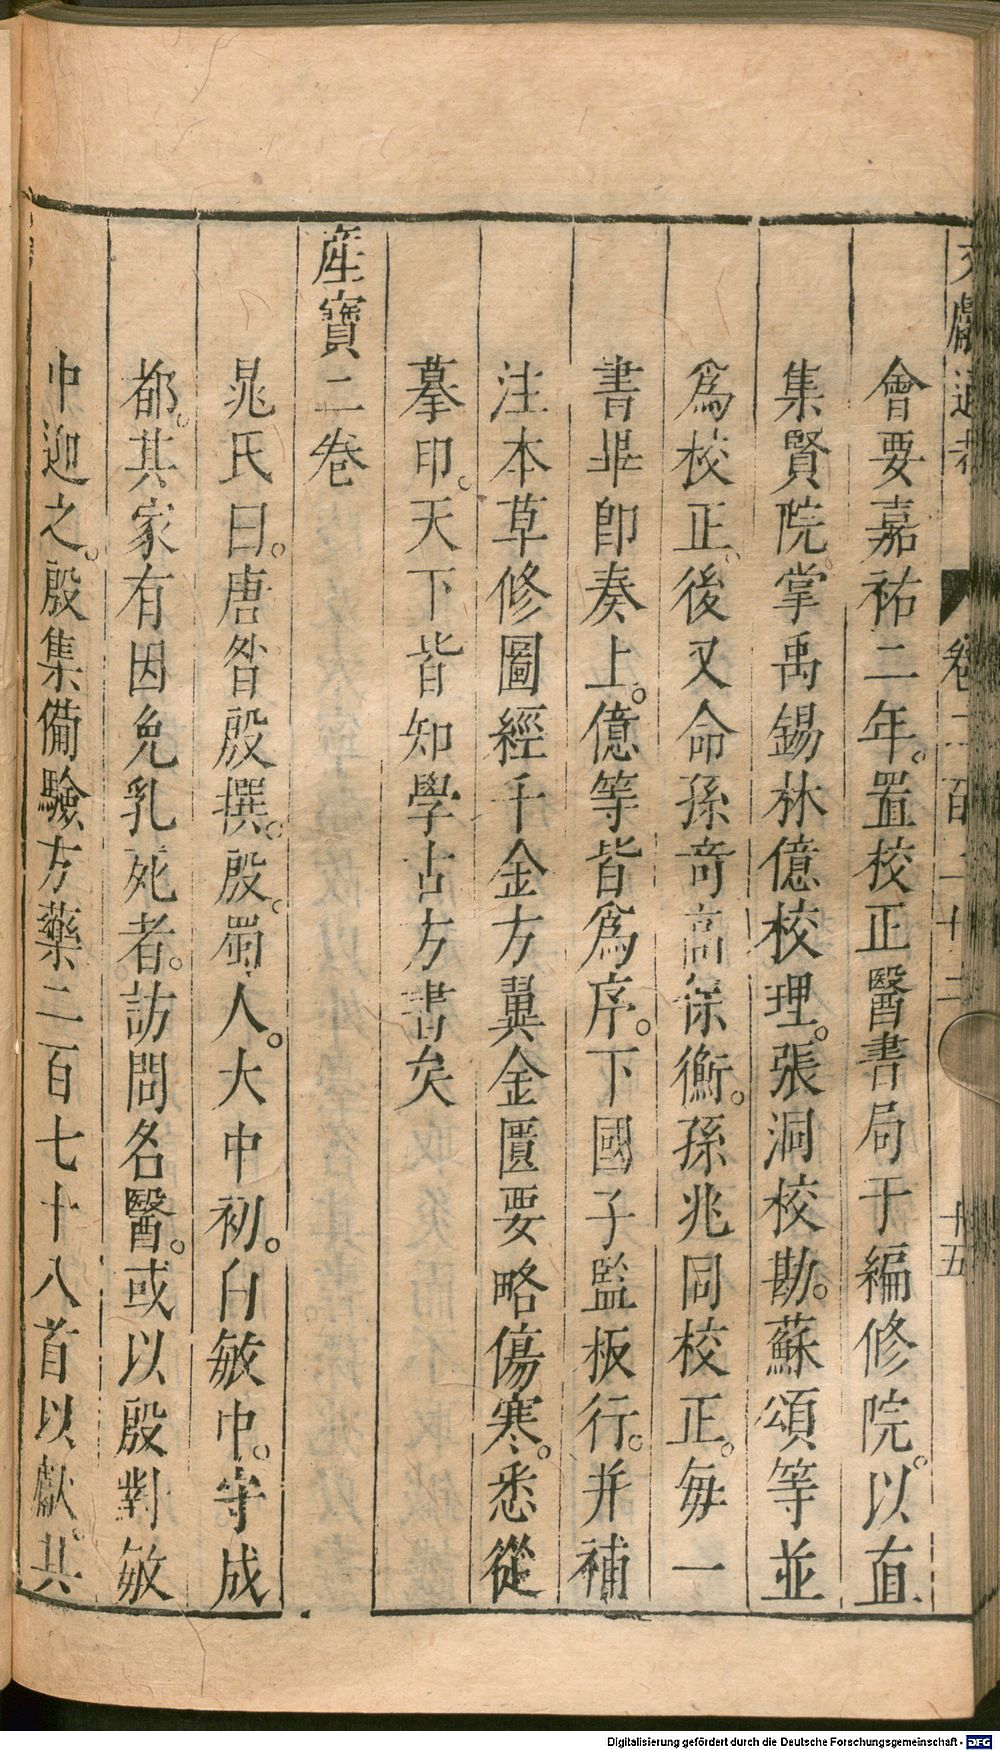 文獻通考 卷二百二十二 十五
會要嘉祐二年。置校正醫書局于編修院。以直
集賢院掌禹錫林億校理。張洞校勘。蘇頌等並
爲校正。後又命孫奇高保衡。孫兆同校正。毎一
書畢即奏上。億等皆爲序。下國子監板行。并補
注本草修圖經千金方翼金匱要略傷寒。悉從
摹印。天下皆知學古方書矣
産寶二卷
晁氏曰。唐昝殷撰。殷。蜀人。大中初。白敏中。守成
都。其家有因免乳死者。訪問名醫。或以殷對敏
中迎之。殷集備驗方藥二百七十八首以獻。其
Digitalisierung gefördert durch die Deutsche Forschungsgemeinschaft - DFG